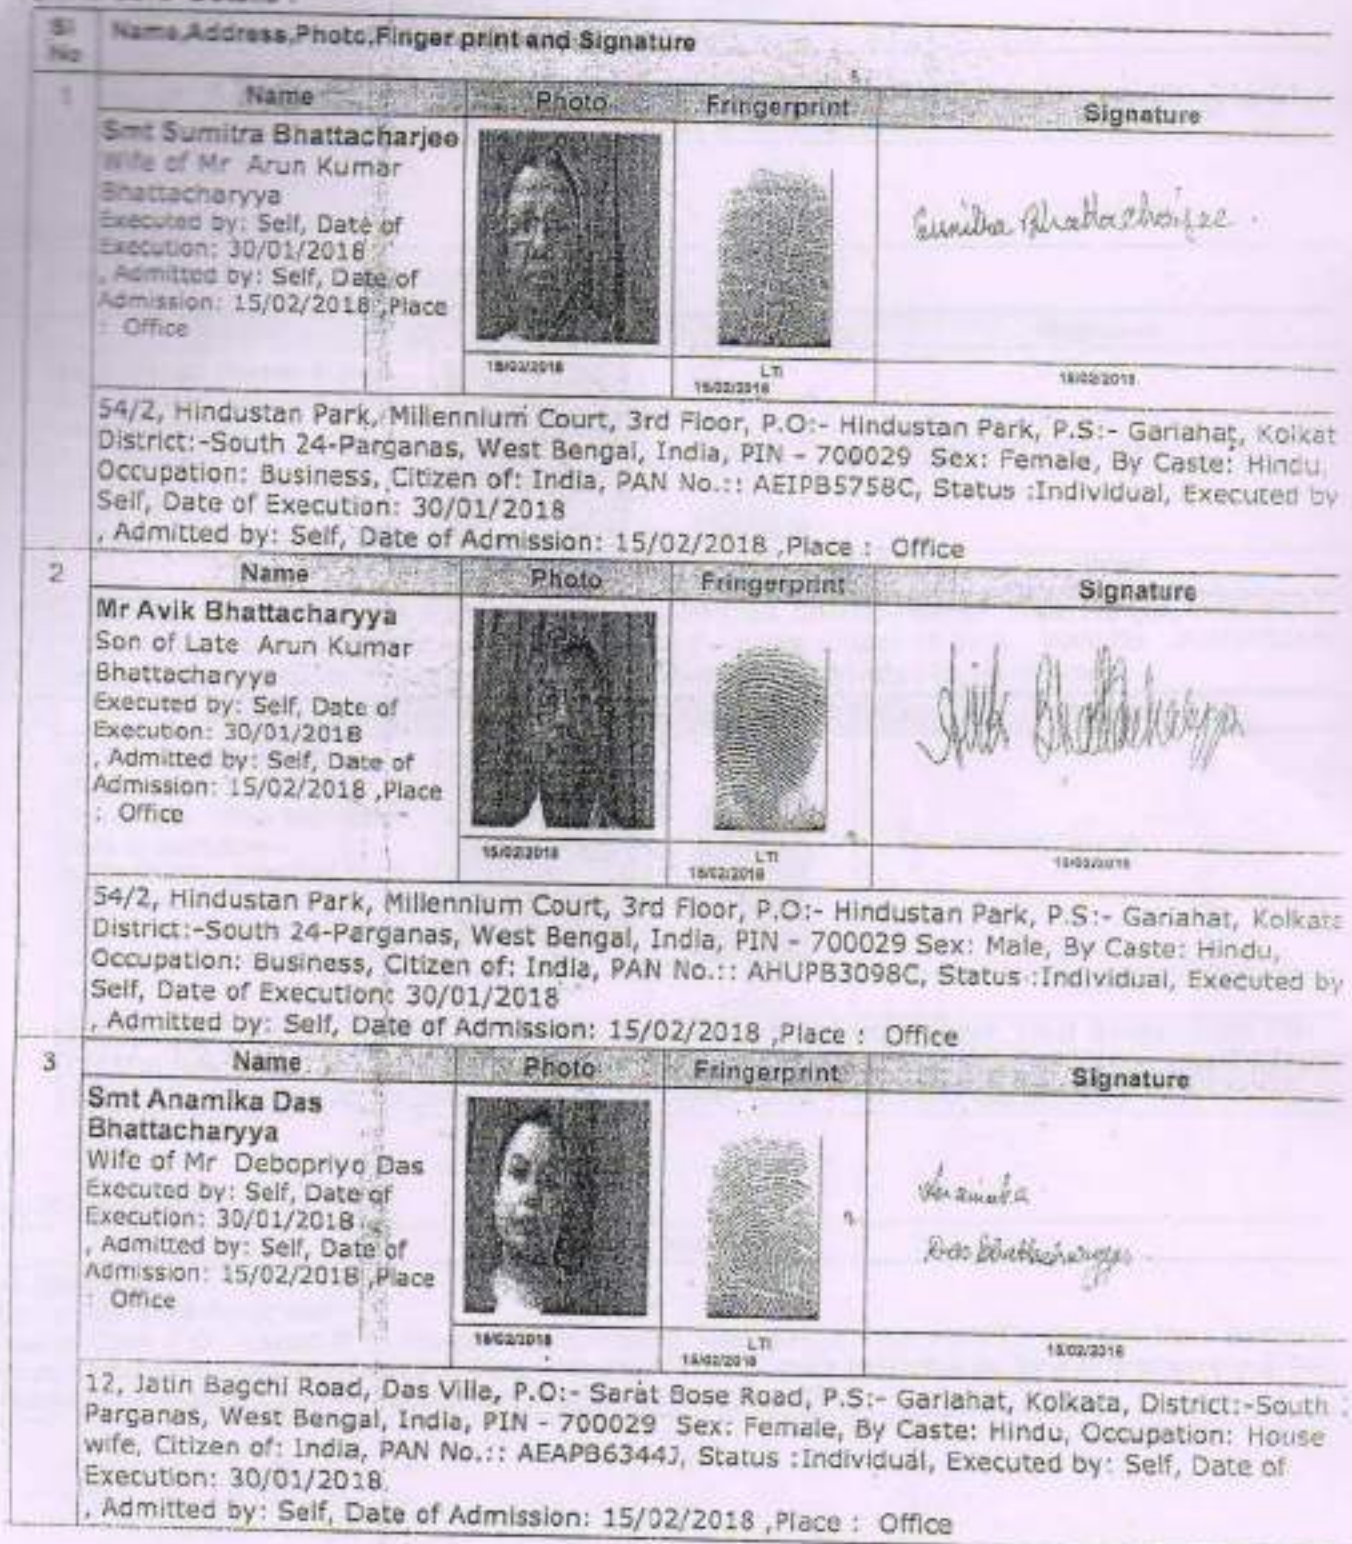 Sl No Name,Address,Photo,Finger print and Signature
1 Name Photo Fringerprint Signature
Smt Sumitra Bhattacharjee
Wife of Mr Arun Kumar
Bhattacharyya
Executed by: Self, Date of
Execution: 30/01/2018
, Admitted by: Self, Date of
Admission: 15/02/2018 ,Place
: Office
Sumitra Bhattacharjee
15/02/2018 LTI 15/02/2018 15/02/2018
54/2, Hindustan Park, Millennium Court, 3rd Floor, P.O:- Hindustan Park, P.S:- Gariahat, Kolkat
District:-South 24-Parganas, West Bengal, India, PIN - 700029 Sex: Female, By Caste: Hindu,
Occupation: Business, Citizen of: India, PAN No.:: AEIPB5758C, Status :Individual, Executed by
Self, Date of Execution: 30/01/2018
, Admitted by: Self, Date of Admission: 15/02/2018 ,Place : Office
2 Name Photo Fringerprint Signature
Mr Avik Bhattacharyya
Son of Late Arun Kumar
Bhattacharyya
Executed by: Self, Date of
Execution: 30/01/2018
, Admitted by: Self, Date of
Admission: 15/02/2018 ,Place
: Office
Avik Bhattacharyya
15/02/2018 LTI 15/02/2018 15/02/2018
54/2, Hindustan Park, Millennium Court, 3rd Floor, P.O:- Hindustan Park, P.S:- Gariahat, Kolkata
District:-South 24-Parganas, West Bengal, India, PIN - 700029 Sex: Male, By Caste: Hindu,
Occupation: Business, Citizen of: India, PAN No.:: AHUPB3098C, Status :Individual, Executed by
Self, Date of Execution: 30/01/2018
, Admitted by: Self, Date of Admission: 15/02/2018 ,Place : Office
3 Name Photo Fringerprint Signature
Smt Anamika Das
Bhattacharyya
Wife of Mr Debopriyo Das
Executed by: Self, Date of
Execution: 30/01/2018
, Admitted by: Self, Date of
Admission: 15/02/2018 ,Place
: Office
Anamika
Das Bhattacharyya
15/02/2018 LTI 15/02/2018 15/02/2018
12, Jatin Bagchi Road, Das Villa, P.O:- Sarat Bose Road, P.S:- Gariahat, Kolkata, District:-South
Parganas, West Bengal, India, PIN - 700029 Sex: Female, By Caste: Hindu, Occupation: House
wife, Citizen of: India, PAN No.:: AEAPB6344J, Status :Individual, Executed by: Self, Date of
Execution: 30/01/2018
, Admitted by: Self, Date of Admission: 15/02/2018 ,Place : Office